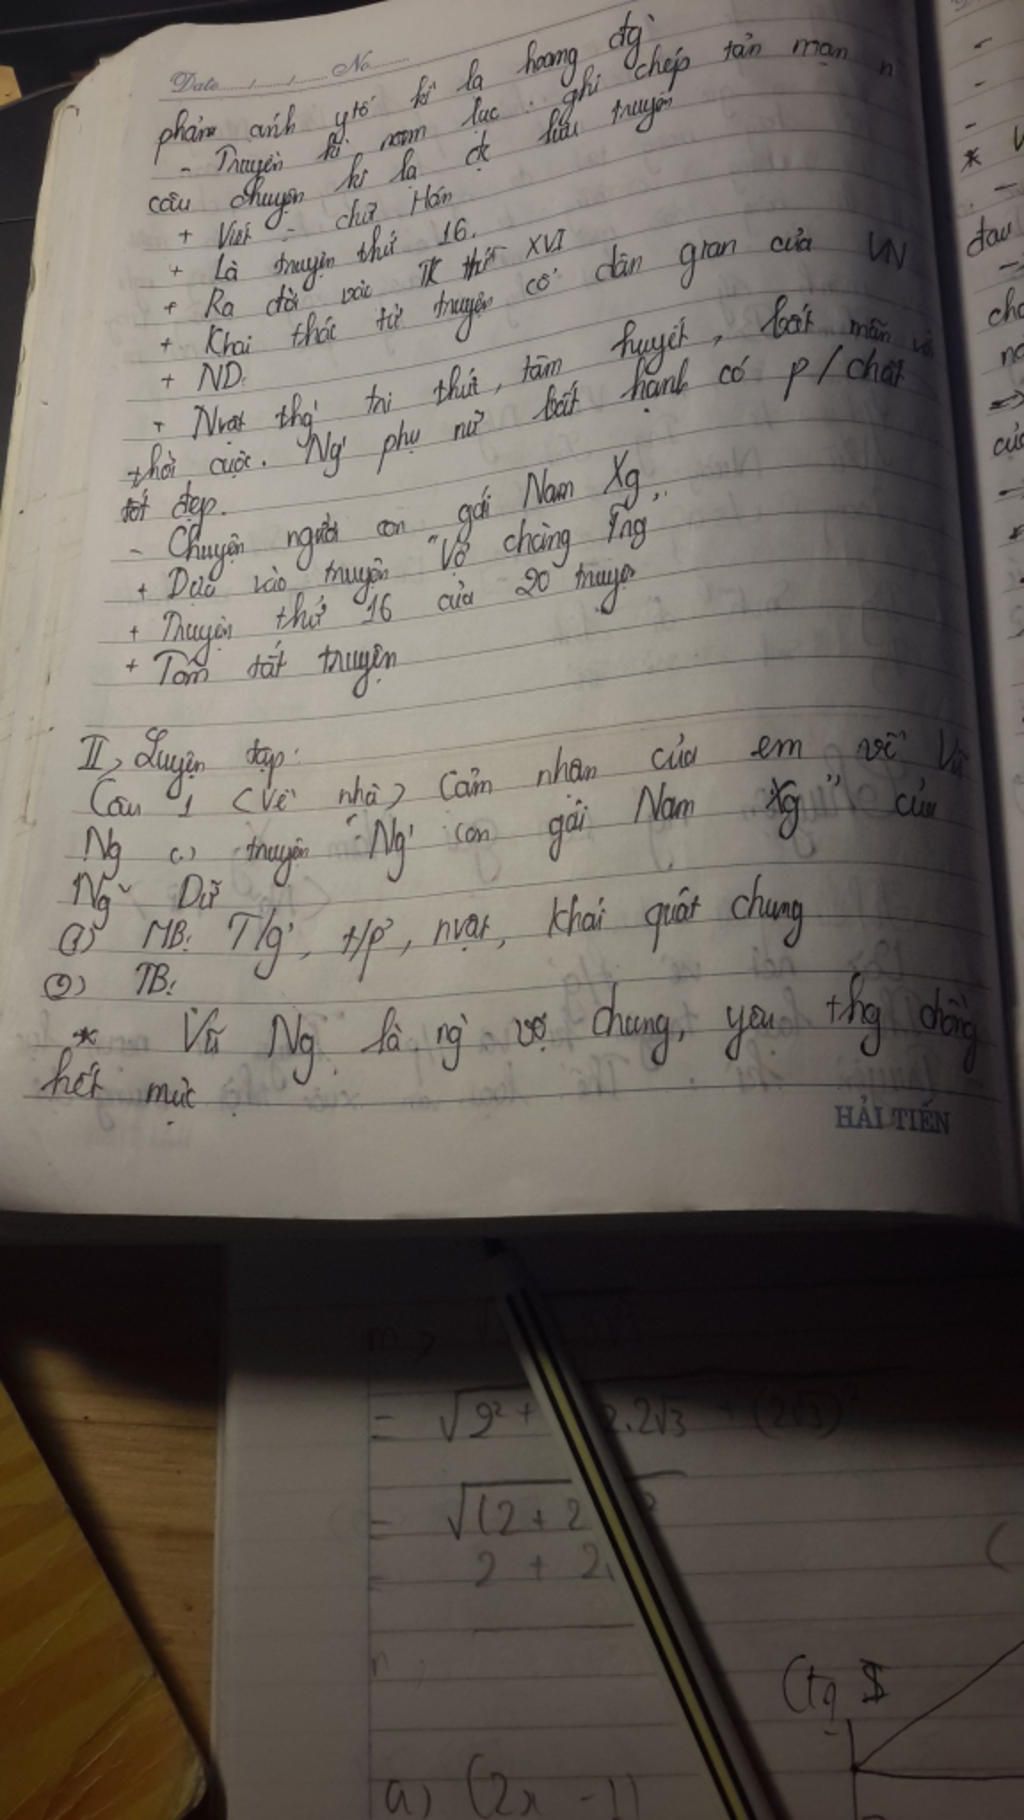 Date...../...../..... No..........
phản ánh ytố kì lạ hoang đg
- Truyền kì nam lục : ghi chép tản mạn n
câu chuyện kì lạ đc lưu truyền
+ Viết = chữ Hán
+ Là truyện thứ 16.
+ Ra đời vào TK thứ XVI
+ Khai thác từ truyện cổ dân gian của VN
+ ND:
+ Nvật thg' tri thức, tâm huyết, bất mãn với
thời cuộc. Ng' phụ nữ bất hạnh có p/chất
tốt đẹp.
- Chuyện người con gái Nam Xg
+ Dựa vào truyện "Vợ chàng Trg"
+ Truyện thứ 16 của 20 truyện
+ Tóm tắt truyện
II, Luyện tập:
Câu 1 (Về nhà) Cảm nhận của em về Vũ
Ng (.) truyện "Ng' con gái Nam Xg" của
Ng~ Dữ
MB: T/g', t/p', nvật, khái quát chung
TB:
* Vũ Ng là ng` vợ chung, yêu thg chồng
hết mực
HẢI TIẾN
m,
= √2² + 2.2√3 + (2√3)²
= √(2 + 2
= 2 + 2
n,
a) (2x - 1)